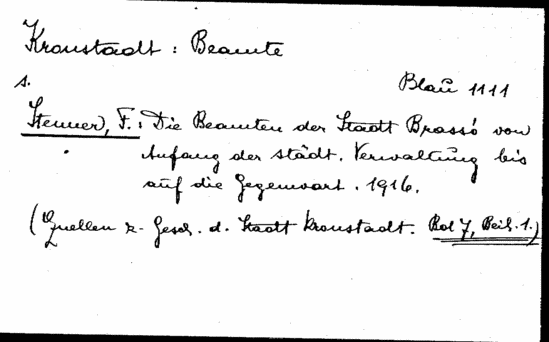 Kronstadt : Beamte
s. Blau 1111
Stenner, F.: Die Beamten der Stadt Brassó von
Anfang der städt. Verwaltung bis
auf die Gegenwart. 1916.
(Quellen z. Gesch. d. Stadt Kronstadt. Bd 7, Beih. 1.)